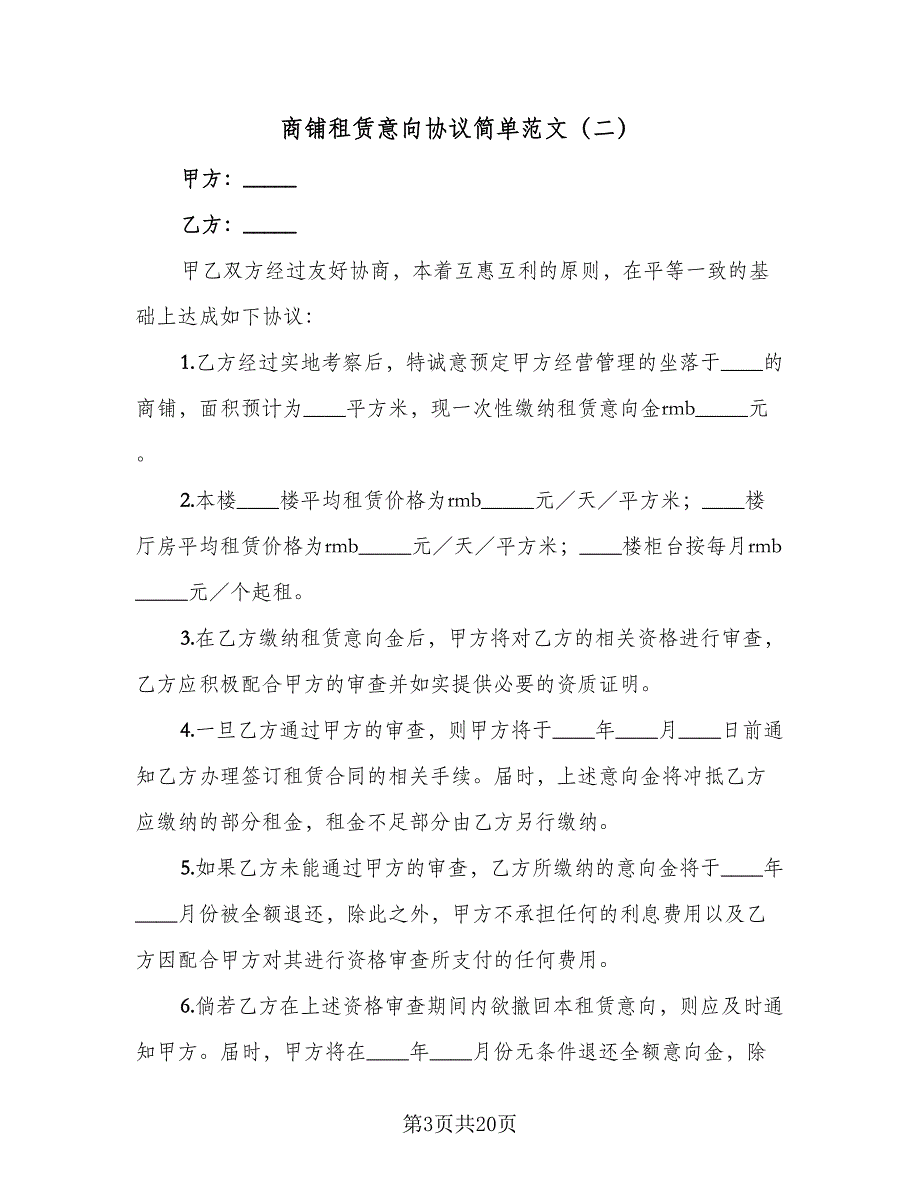 商铺租赁意向协议简单范文（二）
甲方：_____
乙方：_____
甲乙双方经过友好协商，本着互惠互利的原则，在平等一致的基
础上达成如下协议：
1.乙方经过实地考察后，特诚意预定甲方经营管理的坐落于____的
商铺，面积预计为____平方米，现一次性缴纳租赁意向金rmb_____元
。
2.本楼____楼平均租赁价格为rmb_____元／天／平方米；____楼
厅房平均租赁价格为rmb_____元／天／平方米；____楼柜台按每月rmb
_____元／个起租。
3.在乙方缴纳租赁意向金后，甲方将对乙方的相关资格进行审查，
乙方应积极配合甲方的审查并如实提供必要的资质证明。
4.一旦乙方通过甲方的审查，则甲方将于____年____月____日前通
知乙方办理签订租赁合同的相关手续。届时，上述意向金将冲抵乙方
应缴纳的部分租金，租金不足部分由乙方另行缴纳。
5.如果乙方未能通过甲方的审查，乙方所缴纳的意向金将于____年
____月份被全额退还，除此之外，甲方不承担任何的利息费用以及乙
方因配合甲方对其进行资格审查所支付的任何费用。
6.倘若乙方在上述资格审查期间内欲撤回本租赁意向，则应及时通
知甲方。届时，甲方将在____年____月份无条件退还全额意向金，除
第3页共20页